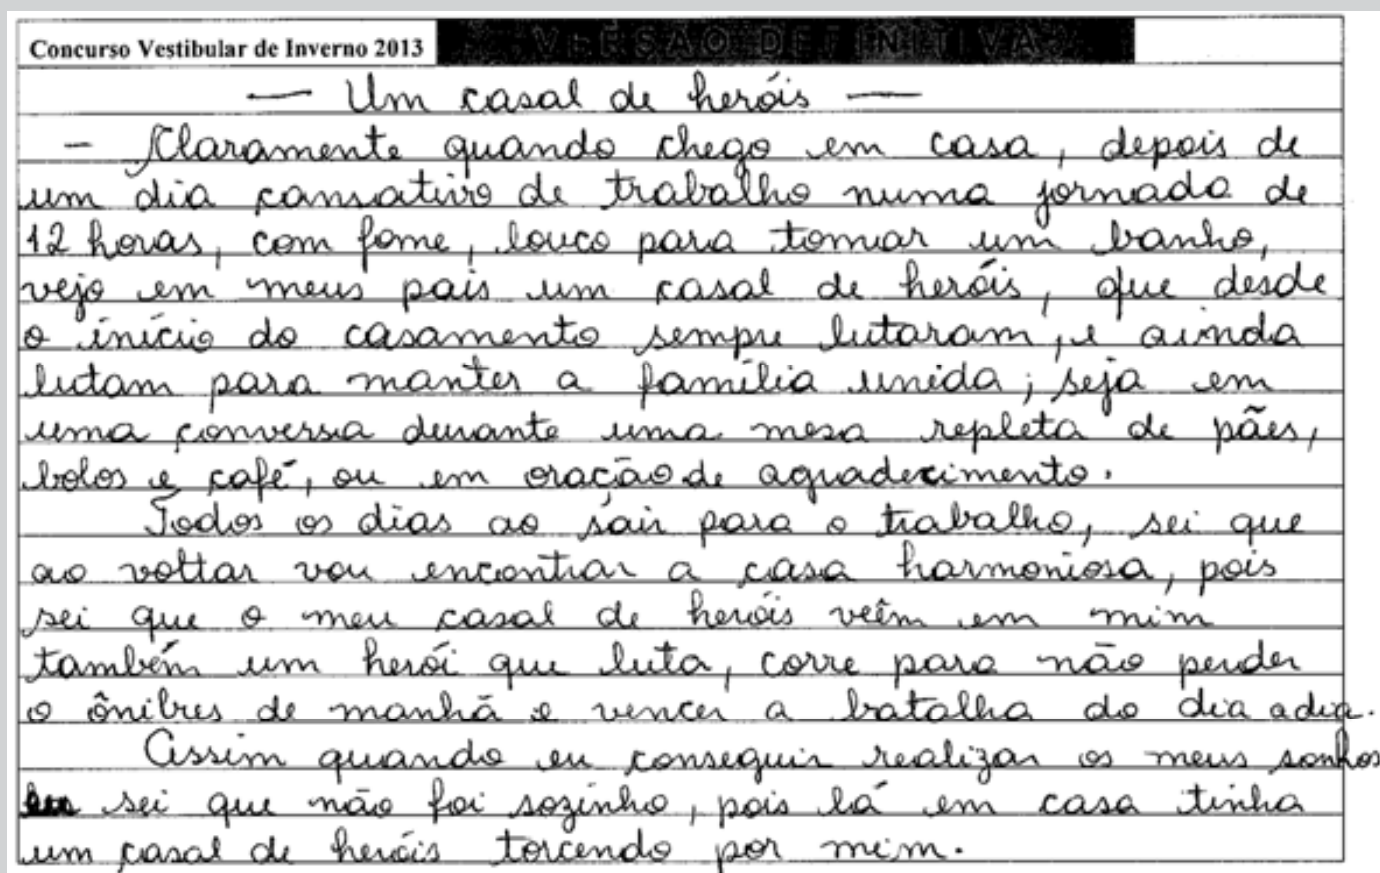 Concurso Vestibular de Inverno 2013
VERSÃO DEFINITIVA
— Um casal de heróis —
- Claramente quando chego em casa, depois de
um dia cansativo de trabalho numa jornada de
12 horas, com fome, louco para tomar um banho,
vejo em meus pais um casal de heróis, que desde
o início do casamento sempre lutaram, e ainda
lutam para manter a família unida; seja em
uma conversa durante uma mesa repleta de pães,
bolos e café, ou em oração de agradecimento.
Todos os dias ao sair para o trabalho, sei que
ao voltar vou encontrar a casa harmoniosa, pois
sei que o meu casal de heróis veêm em mim
também um herói que luta, corre para não perder
o ônibus de manhã e vencer a batalha do dia a dia.
Assim quando eu conseguir realizar os meus sonhos
sei que não foi sozinho, pois lá em casa tinha
um casal de heróis torcendo por mim.